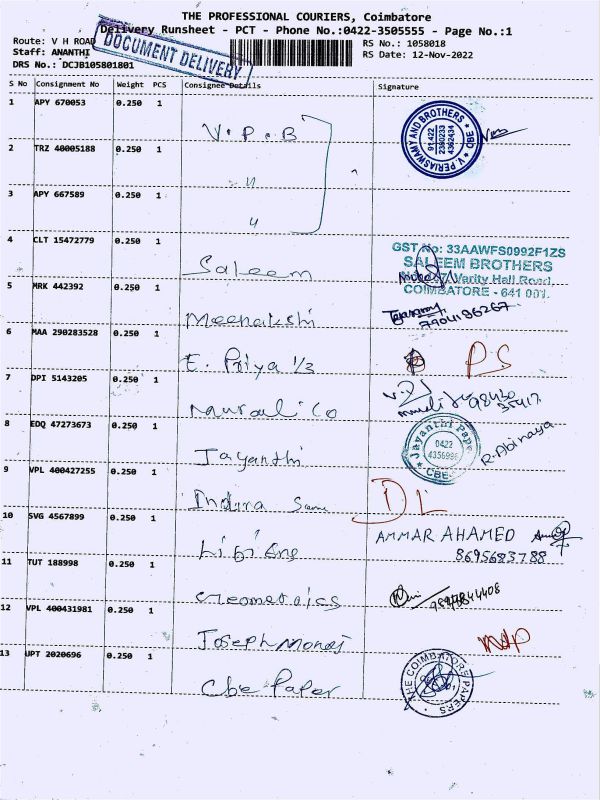 THE PROFESSIONAL COURIERS, Coimbatore
Delivery Runsheet - PCT - Phone No.:0422-3505555 - Page No.:1
Route: V H ROAD
RS No.: 1058018
Staff: ANANTHI
RS Date: 12-Nov-2022
DRS No.: DCJB105801801
DOCUMENT DELIVERY
S No Consignment No Weight PCS Consignee Details Signature
1 APY 670053 0.250 1
V.P.B
V. PERIASWAMY AND BROTHERS
CBE
91 422
2360233
4362434
2 TRZ 40005188 0.250 1
〃
3 APY 667589 0.250 1
〃
4 CLT 15472779 0.250 1
Saleem
GST No: 33AAWFS0992F1ZS
SALEEM BROTHERS
Varity Hall Road,
COIMBATORE - 641 001.
5 MRK 442392 0.250 1
Meenakshi
7904196267
6 MAA 290283528 0.250 1
E. Priya 1/3
PS
7 DPI 5143205 0.250 1
Murali Co
98430
8 EDQ 47273673 0.250 1
Jayanthi
Jayanthi Pape
0422
CBE
R. Abinaya
9 VPL 400427255 0.250 1
Indira
DL
10 SVG 4567899 0.250 1
AMMAR AHAMED
8695683788
11 TUT 188998 0.250 1
12 VPL 400431981 0.250 1
Joseph
13 JPT 2020696 0.250 1
Cbe Paper
THE COIMBATORE PAPERS